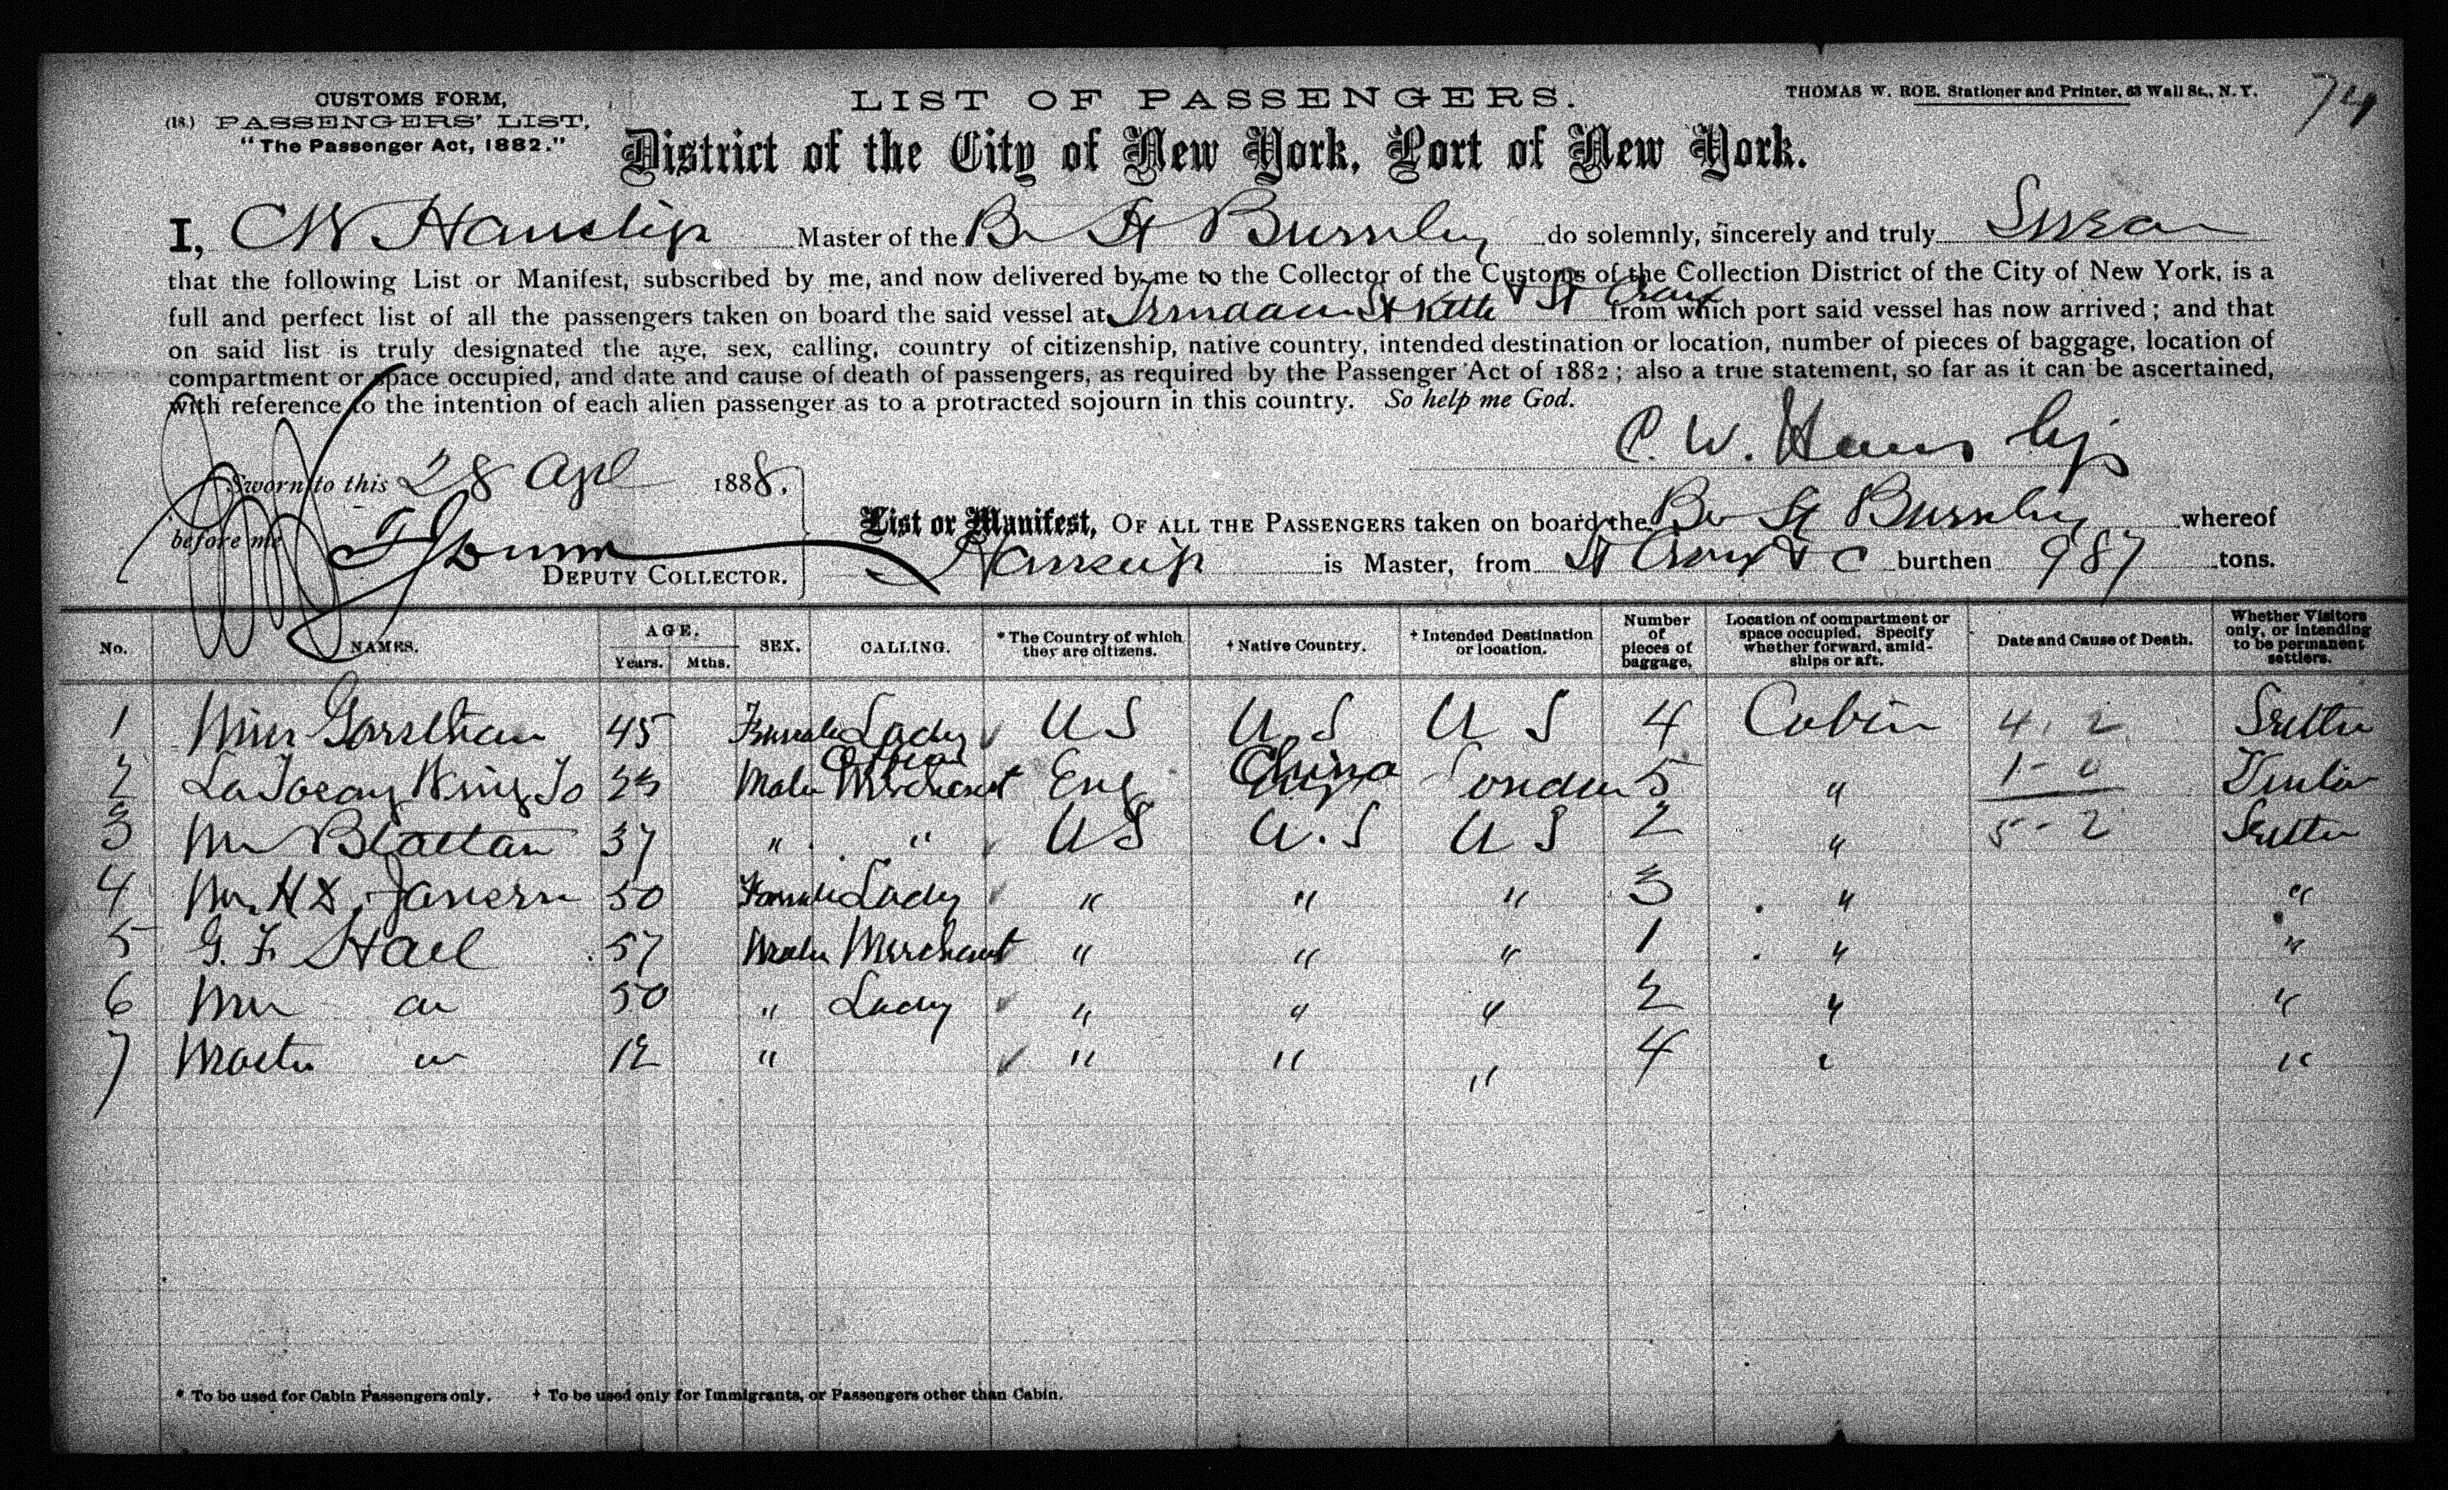 CUSTOMS FORM,
(18.) PASSENGERS' LIST,
"The Passenger Act, 1882."
LIST OF PASSENGERS.
THOMAS W. ROE. Stationer and Printer, 63 Wall St., N. Y.
74
District of the City of New York, Port of New York.
I, C W Hanslip Master of the Br St Burnley do solemnly, sincerely and truly Swear
that the following List or Manifest, subscribed by me, and now delivered by me to the Collector of the Customs of the Collection District of the City of New York, is a
full and perfect list of all the passengers taken on board the said vessel at St Kitts & St Croix from which port said vessel has now arrived; and that
on said list is truly designated the age, sex, calling, country of citizenship, native country, intended destination or location, number of pieces of baggage, location of
compartment or space occupied, and date and cause of death of passengers, as required by the Passenger Act of 1882; also a true statement, so far as it can be ascertained,
with reference to the intention of each alien passenger as to a protracted sojourn in this country. So help me God.
C. W. Hanslip
Sworn to this 28 Apl 1888.
before me
DEPUTY COLLECTOR.
List or Manifest, OF ALL THE PASSENGERS taken on board the Br St Burnley whereof
Hanslip is Master, from St Croix & C burthen 987 tons.
No. NAMES. AGE. Years. Mths. SEX. CALLING. * The Country of which they are citizens. + Native Country. + Intended Destination or location. Number of pieces of baggage. Location of compartment or space occupied. Specify whether forward, amidships or aft. Date and Cause of Death. Whether Visitors only, or intending to be permanent settlers.
1 Miss 45 Female Lady U S U.S U S 4 Cabin 4. 2 Settler
2 Male Merchant Eng China London 5 " 1-0
3 Mr Blattan 37 " " U S U.S U S 2 " 5-2 Settler
4 50 Female Lady " " " 3 " "
5 G. F. Hall 57 Male Merchant " " " 1 " "
6 50 " Lady " " " 2 " "
7 Master 12 " " " " 4 " "
* To be used for Cabin Passengers only. + To be used only for Immigrants, or Passengers other than Cabin.